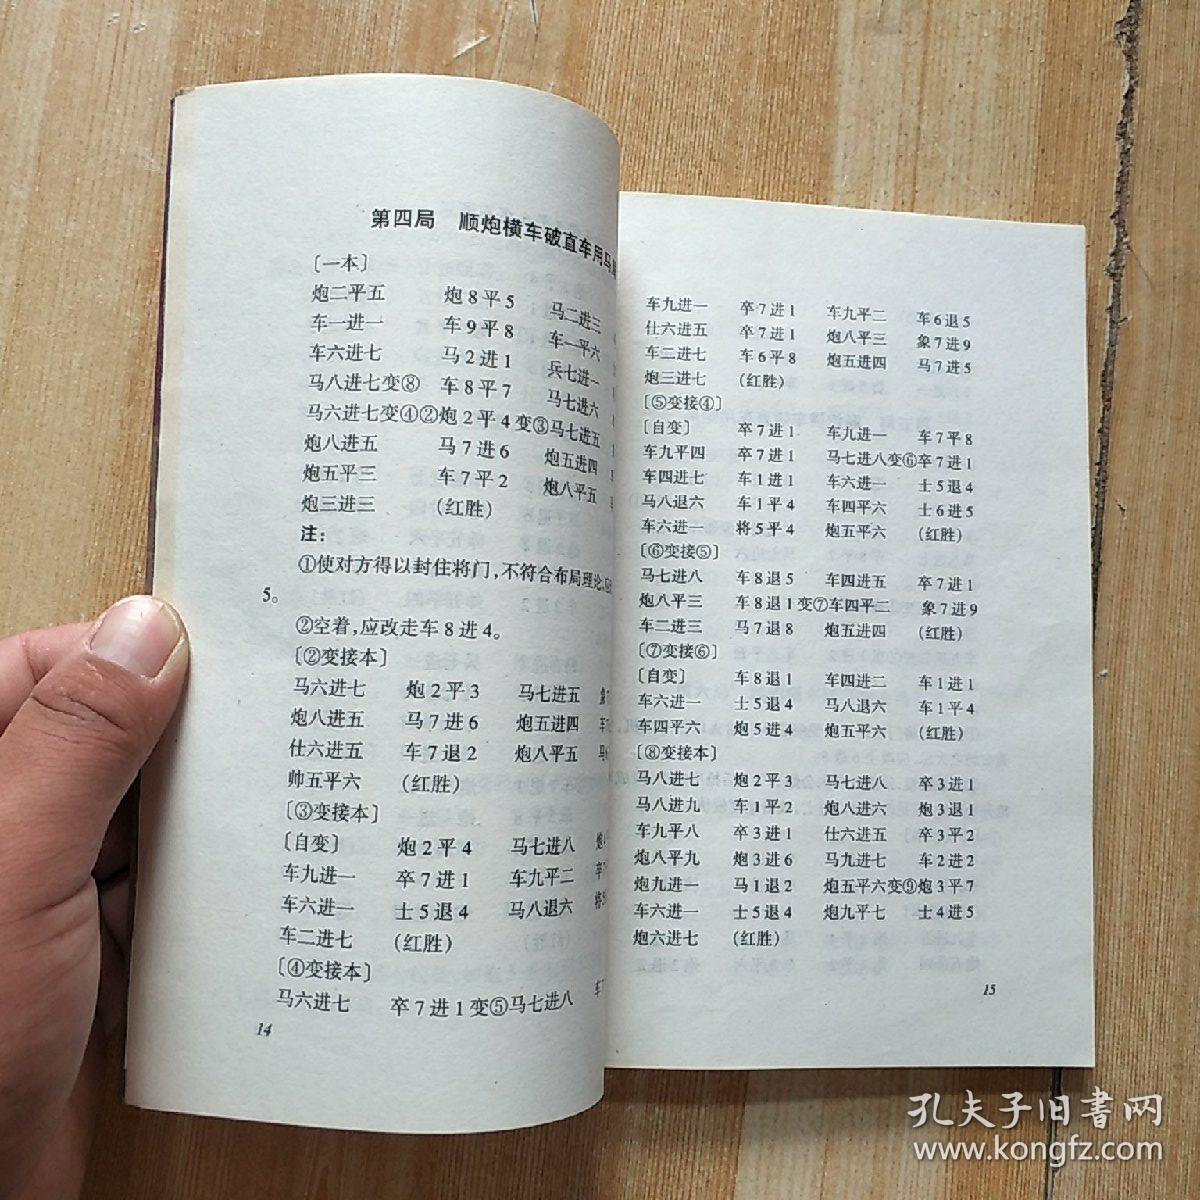 第四局 顺炮横车破直车用马
〔一本〕
炮二平五 炮8平5 马二进三
车一进一 车9平8 车一平六
车六进七 马2进1 兵七进一
马八进七变⑧ 车8平7 马七进六
马六进七变④②炮2平4变③马七进五
炮八进五 马7进6 炮五进四
炮五平三 车7平2 炮八平五
炮三进三 (红胜)
注:
①使对方得以封住将门,不符合布局理论,
5。
②空着,应改走车8进4。
〔②变接本〕
马六进七 炮2平3 马七进五
炮八进五 马7进6 炮五进四
仕六进五 车7退2 炮八平五
帅五平六 (红胜)
〔③变接本〕
〔自变〕 炮2平4 马七进八
车九进一 卒7进1 车九平二
车六进一 士5退4 马八退六
车二进七 (红胜)
〔④变接本〕
马六进七 卒7进1变⑤马七进八
14
车九进一 卒7进1 车九平二 车6退5
仕六进五 卒7进1 炮八平三 象7进9
车二进七 车6平8 炮五进四 马7进5
炮三进七 (红胜)
〔⑤变接④〕
〔自变〕 卒7进1 车九进一 车7平8
车九平四 卒7进1 马七进八变⑥卒7进1
车四进七 车1进1 车六进一 士5退4
马八退六 车1平4 车四平六 士6进5
车六进一 将5平4 炮五平六 (红胜)
〔⑥变接⑤〕
马七进八 车8退5 车四进五 卒7进1
炮八平三 车8退1变⑦车四平二 象7进9
车二进三 马7退8 炮五进四 (红胜)
〔⑦变接⑥〕
〔自变〕 车8退1 车四进二 车1进1
车六进一 士5退4 马八退六 车1平4
车四平六 炮5进4 炮五平六 (红胜)
〔⑧变接本〕
马八进七 炮2平3 马七进八 卒3进1
马八进九 车1平2 炮八进六 炮3退1
车九平八 卒3进1 仕六进五 卒3平2
炮八平九 炮3进6 马九进七 车2进2
炮九进一 马1退2 炮五平六变⑨炮3平7
车六进一 士5退4 炮九平七 士4进5
炮六进七 (红胜)
15
孔夫子旧书网
www.kongfz.com